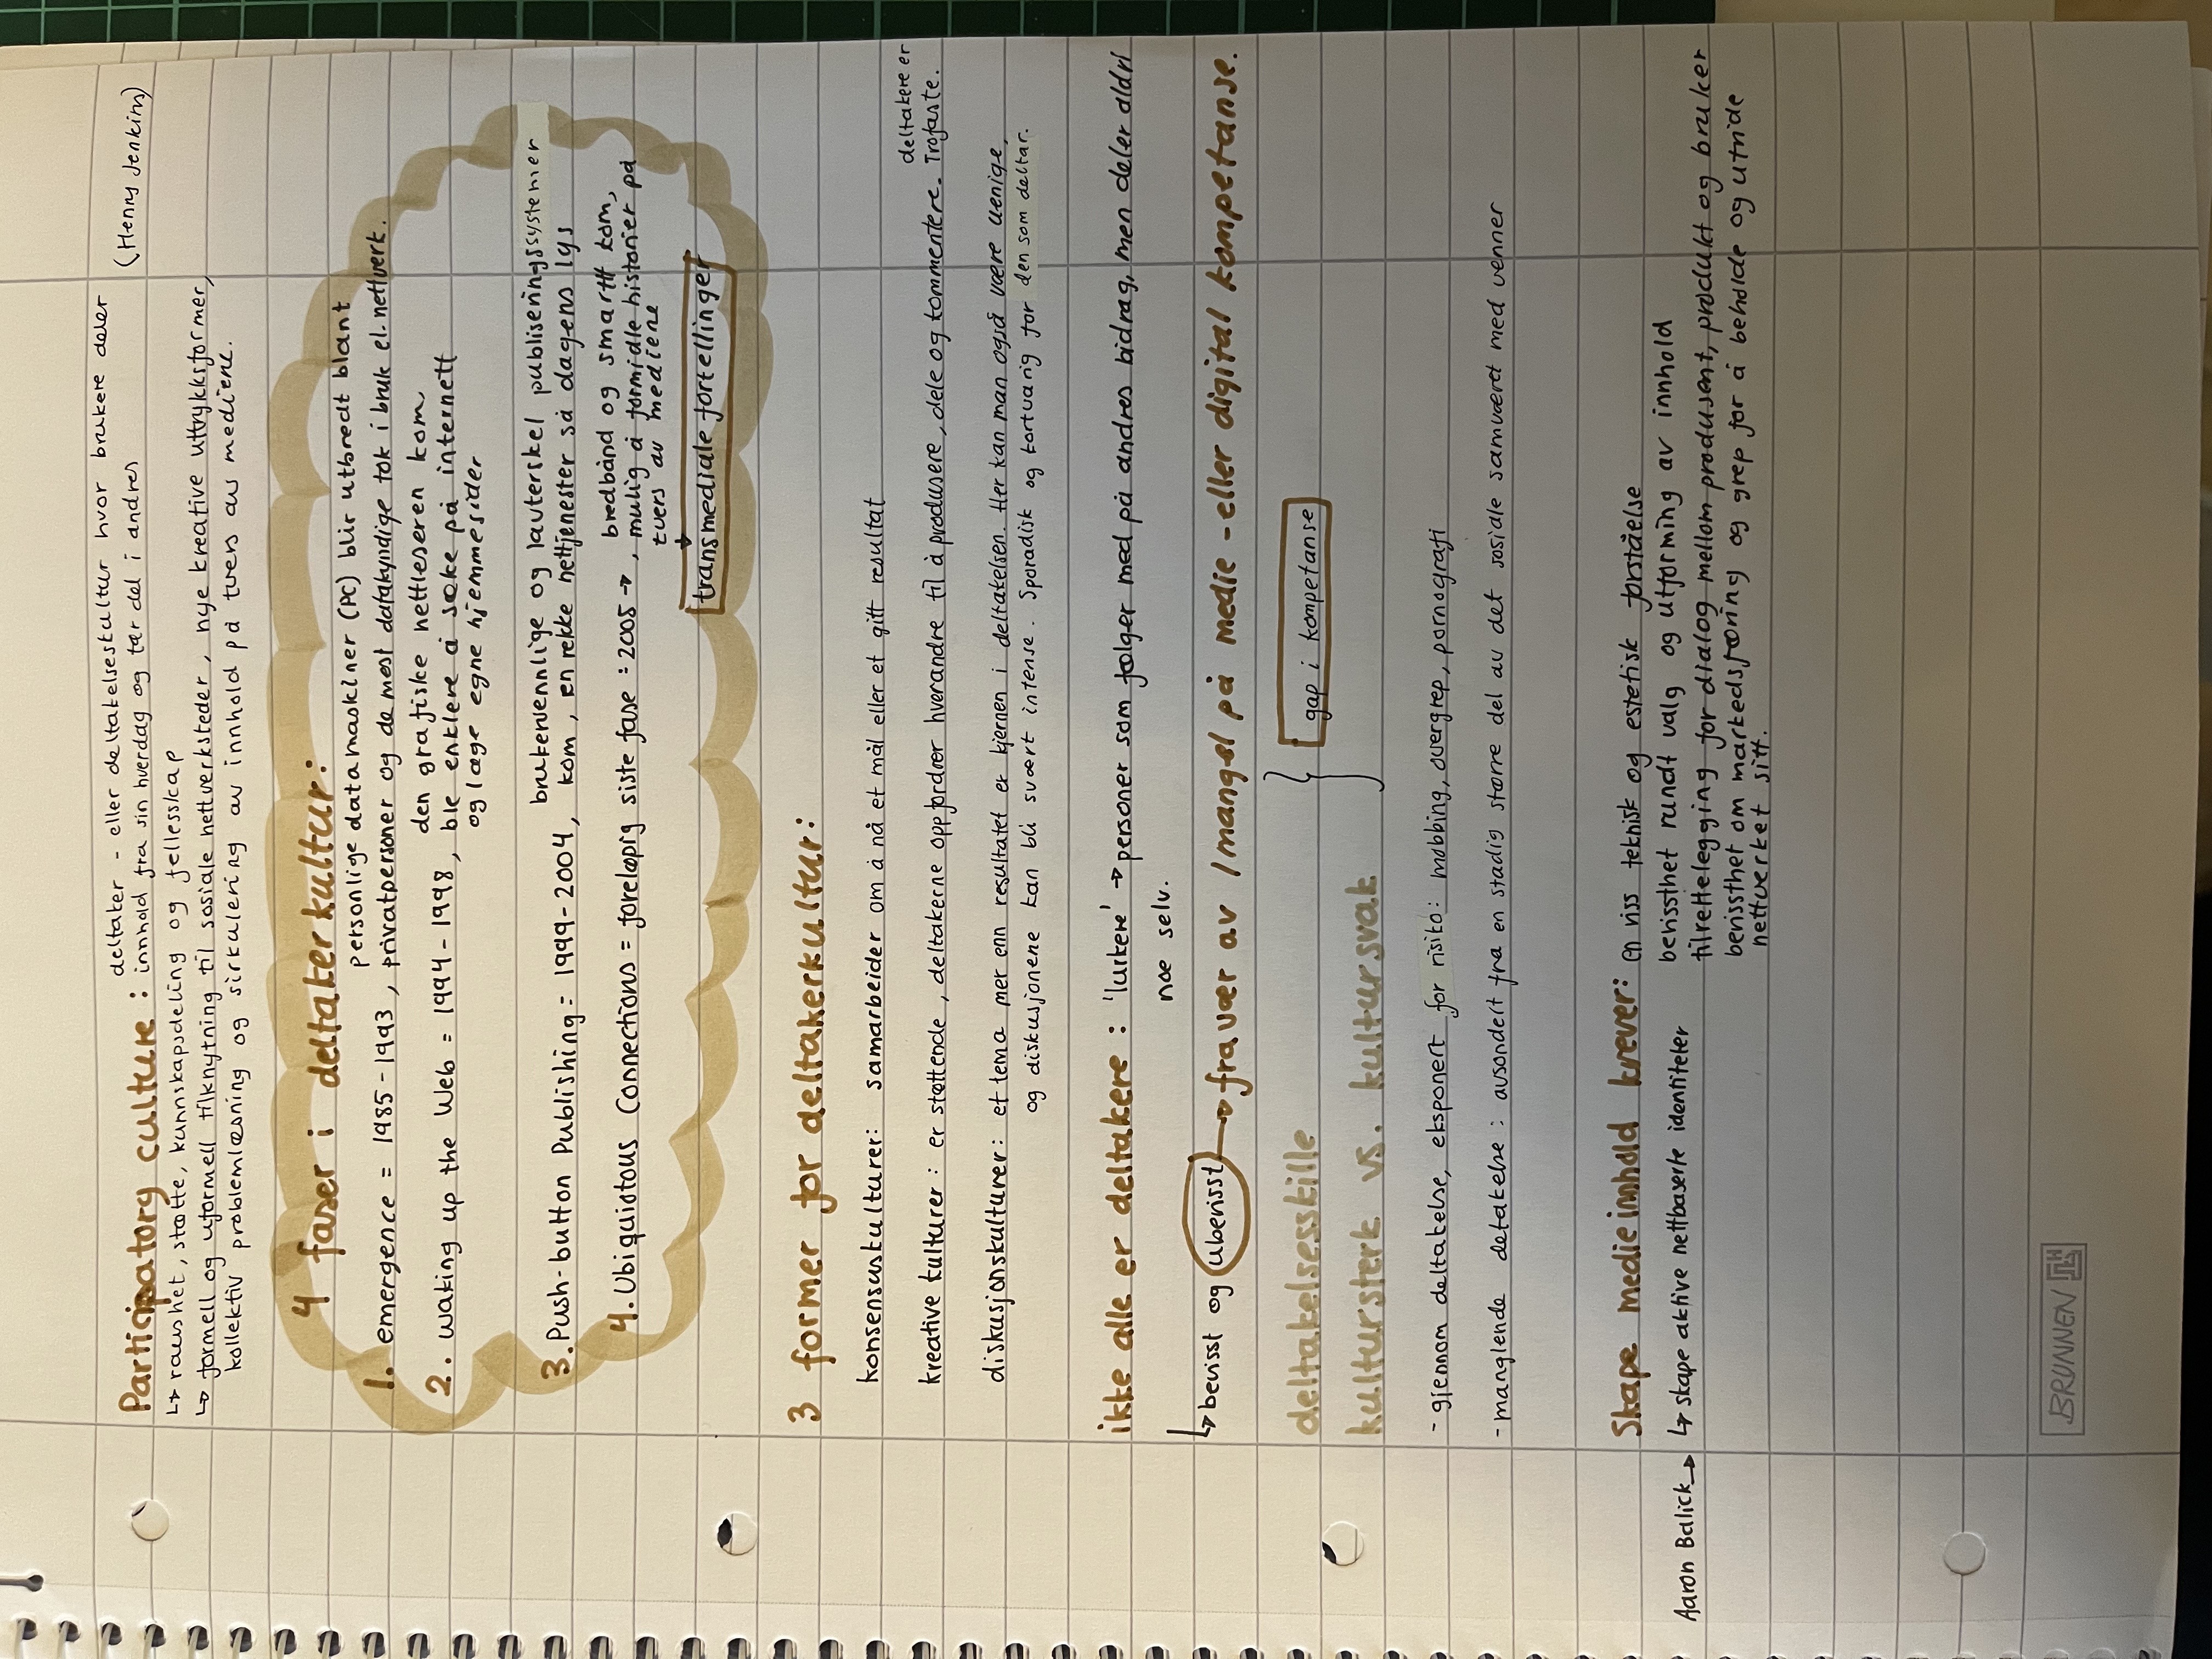 (Henny Jenkins)
deltaker - eller deltakelsestultur hvor brukere deler
Participatory culture : innhold fra sin hverdag og tar del i andres
↳ raushet, støtte, kunnskapsdeling og fellesskap
↳ formell og uformell tilknytning til sosiale nettverksteder, nye kreative uttrykksformer,
kollektiv problemløsning og sirkulering av innhold på tvers av mediene.
4 faser i deltakerkultur:
personlige datamaskiner (PC) blir utbredt blant
1. emergence = 1985-1993, privatpersoner og de mest datakyndige tok i bruk el.nettverk.
den grafiske nettleseren kom,
2. waking up the Web = 1994-1998, ble enklere å søke på internett
og læge egne hjemmesider
brukervennlige og lauterskel publiseringssystemer
3. Push-button Publishing = 1999-2004, kom, en rekke nettjenester så dagens lys
bredbånd og smarttf kom,
4. Ubiquiotous Connections = foreløpig siste fase : 2005 →, mulig å formidle historier på
tvers av mediene
transmediale fortellinger
3 former for deltakerkultur:
konsensuskulturer: samarbeider om å nå et mål eller et gitt resultat
deltakere er
kreative kulturer : er støttende, deltakerne oppfordrer hverandre til å produsere, dele og kommentere. Trofaste.
diskusjonskulturer: et tema mer enn resultatet er kjernen i deltakelsen. Her kan man også være uenige,
og diskusjonene kan bli svært intense. Sporadisk og kortvarig for den som deltar.
ikke alle er deltakere : 'lurkere' → personer som følger med på andres bidrag, men deler aldri
noe selv.
↳ bevisst og ubevisst → fravær av /mangel på medie-eller digital kompetanse.
deltakelsesskille
gap i kompetanse
kultursterk vs. kultursvak
- gjennom deltakelse, eksponert for risiko: mobbing, overgrep, pornografi
- manglende deltakelse : avsondert fra en stadig større del av det sosiale samværet med venner
Skape medieinnhold krever: en viss teknisk og estetisk forståelse
Aaron Balick → ↳ skape aktive nettbaserte identiteter
bevissthet rundt valg og utforming av innhold
tilrettelegging for dialog mellom produsent, produkt og bruker
bevissthet om markedsføring og grep for å beholde og utvide
nettverket sitt.
BRUNNEN